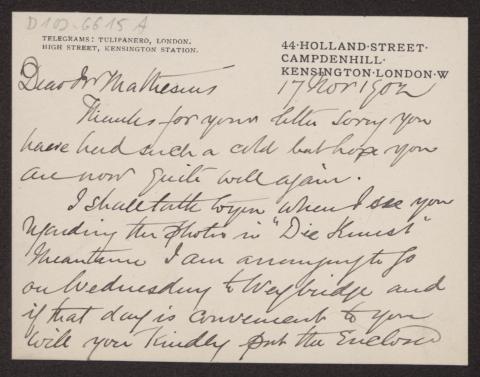 D102-6615 A
TELEGRAMS: TULIPANERO, LONDON.
HIGH STREET, KENSINGTON STATION.
44·HOLLAND·STREET·
CAMPDENHILL·
KENSINGTON·LONDON·W
17 Nov 1902
Dear Mr Mathesius
Thanks for your letter sorry you
have had such a cold but hope you
are now quite well again.
I shall talk to you when I see you
regarding the photos in "Die Kunst"
Meantime I am arranging to go
on Wednesday to Weybridge and
if that day is convenient to you
will you kindly put the Enclosed